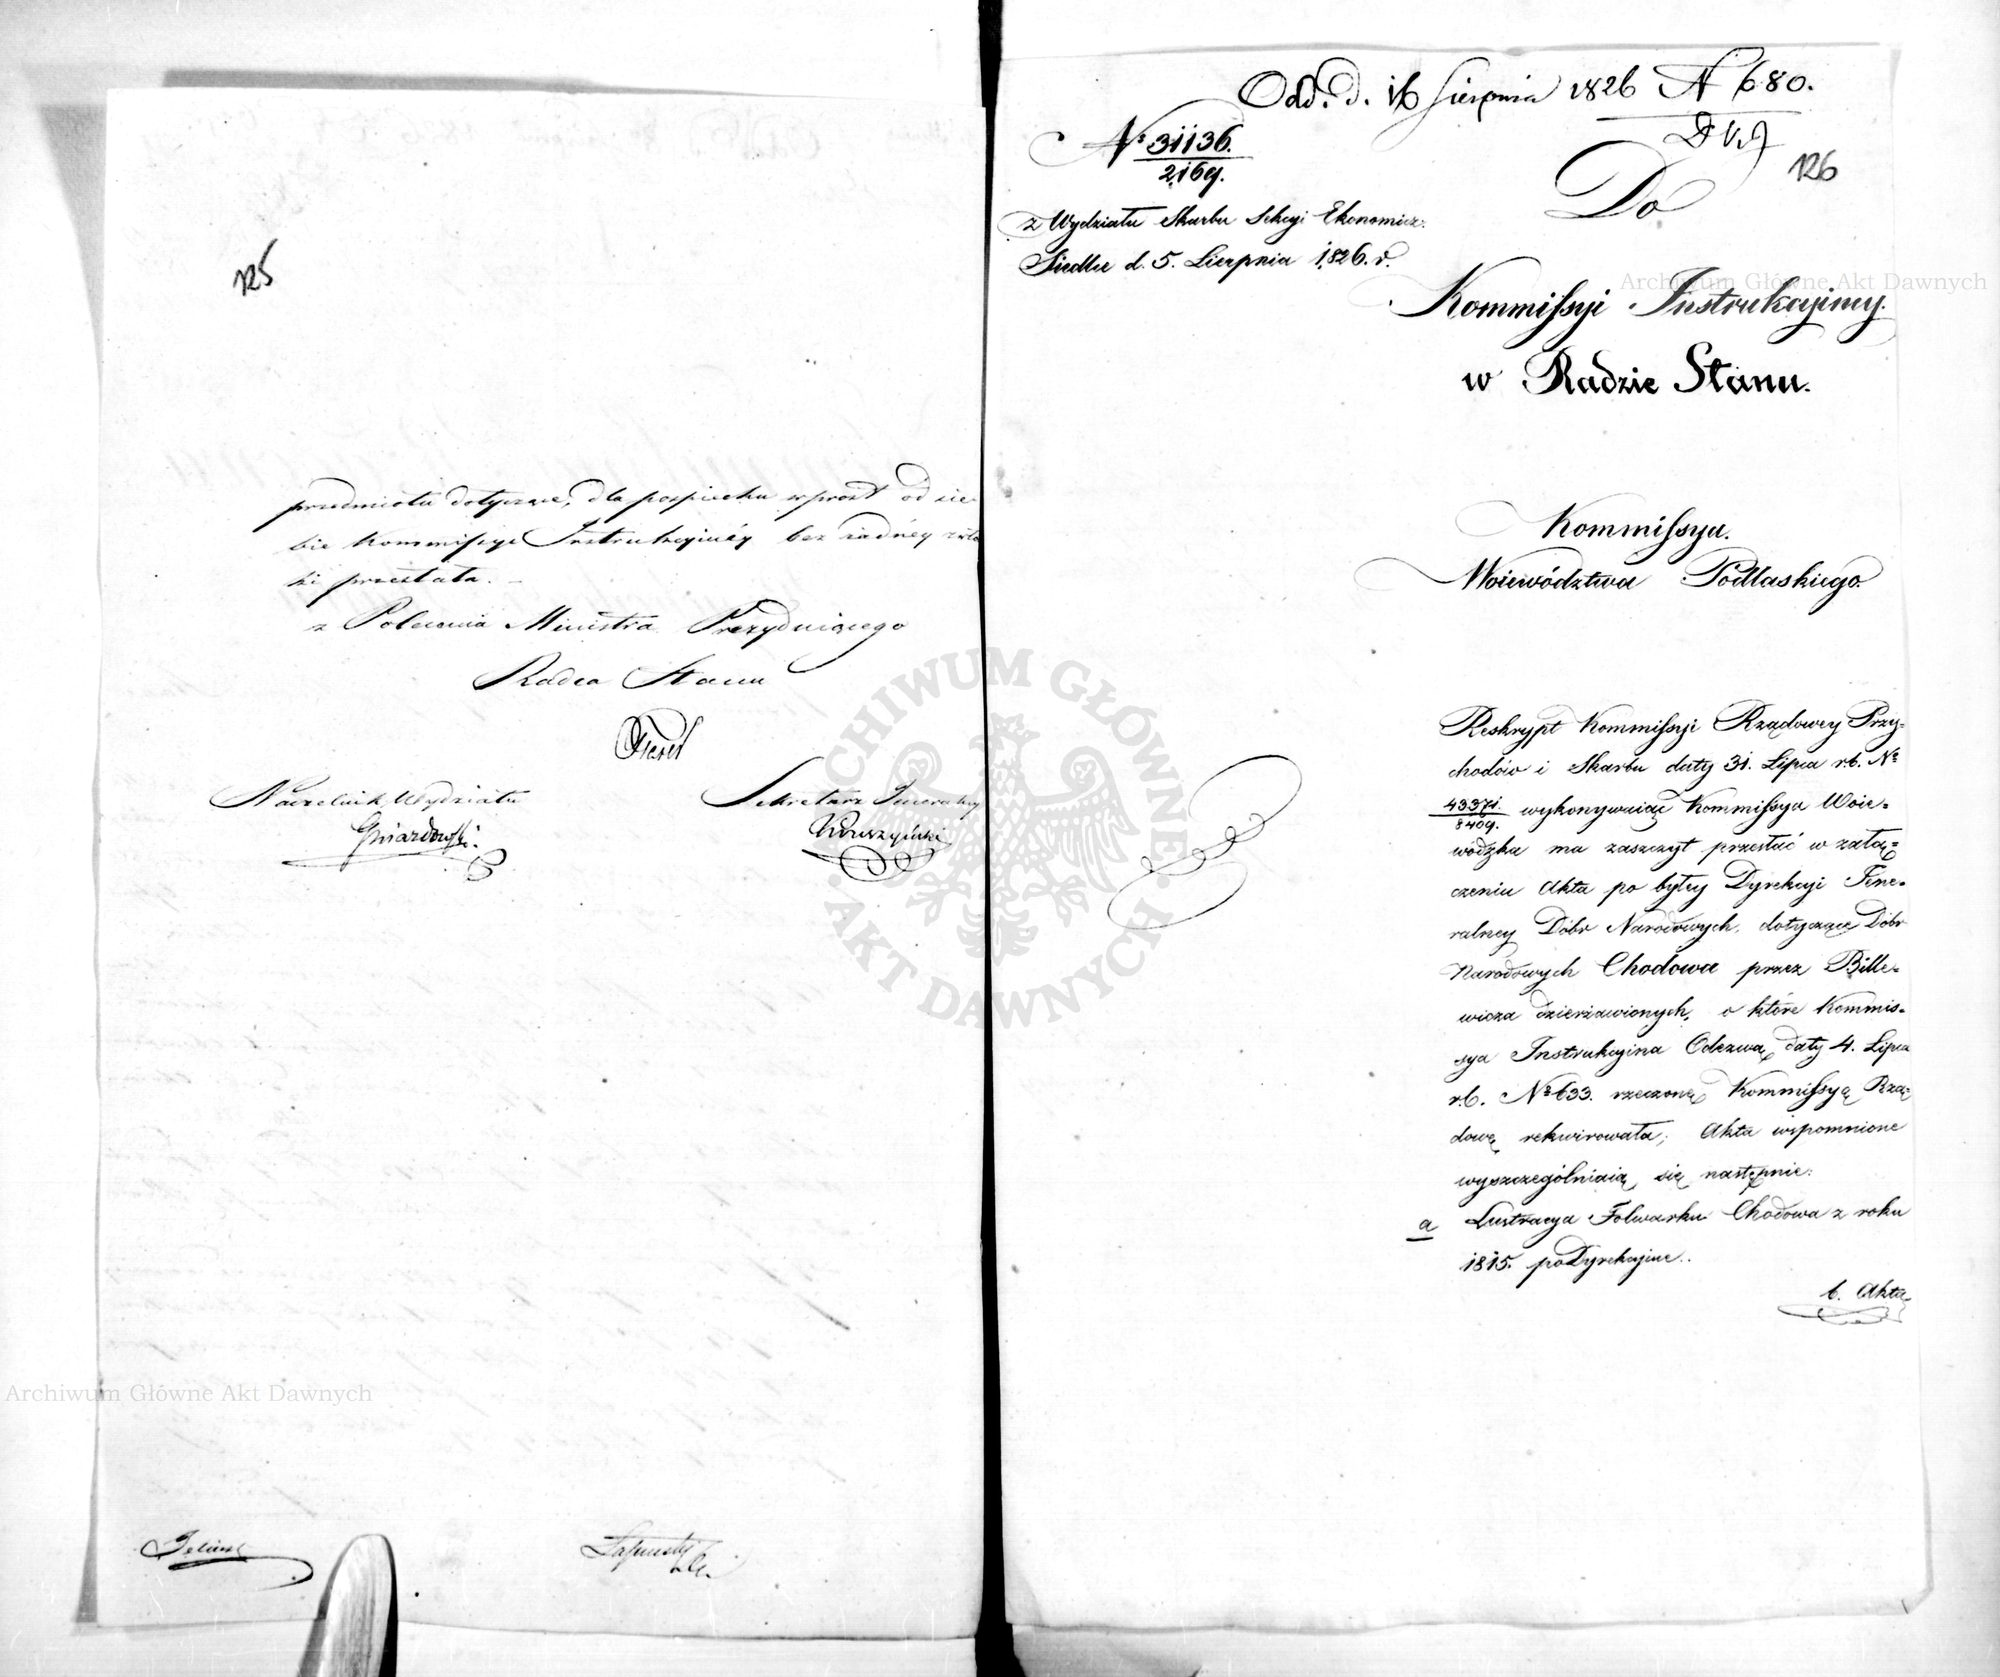 125
przedmiotu dotyczące, dla pospiechu wprost od sie-
bie Kommissyi Instrukcyinéy bez żadnéy zwło
ki przesłała.
z Polecenia Ministra Prezyduiącego
Radca Stanu
Naczelnik Wydziału
Sekretarz Jeneralny
Gwiazdowski
Kruszyński
Odd. d. 16 Sierpnia 1826 N 680.
126
Nº 31136.
2169.
z Wydziału Skarbu Sekcyi Ekonomicz:
Siedlce d. 5. Sierpnia 1826. r.
Do
Kommissyi Instrukcyiney.
w Radzie Stanu.
Kommissya.
Woiewództwa Podlaskiego.
Reskrypt Kommissyi Rządowey Przy=
chodów i Skarbu daty 31. Lipca r.b. Nº
43371.
8409. wykonywaiąc Kommissya Woie=
wódzka ma zaszczyt przesłać w załą=
czeniu Akta po byłey Dyrekcyi Jene=
ralney Dóbr Narodowych, dotyczące Dóbr
Narodowych Chodowa przez Bille=
wicza dzierżawionych, o które Kommis=
sya Instrukcyina Odezwą daty 4. Lipca
r.b. Nº 633. rzeczoną Kommissyą Rzą=
dową rekwirowała; Akta wspomnione
wyszczególniaią się następnie:
a Lustracya Folwarku Chodowa z roku
1815. poDyrekcyine.
b. Akta
Archiwum Główne Akt Dawnych
Archiwum Główne Akt Dawnych
ARCHIWUM GŁÓWNE
AKT DAWNYCH